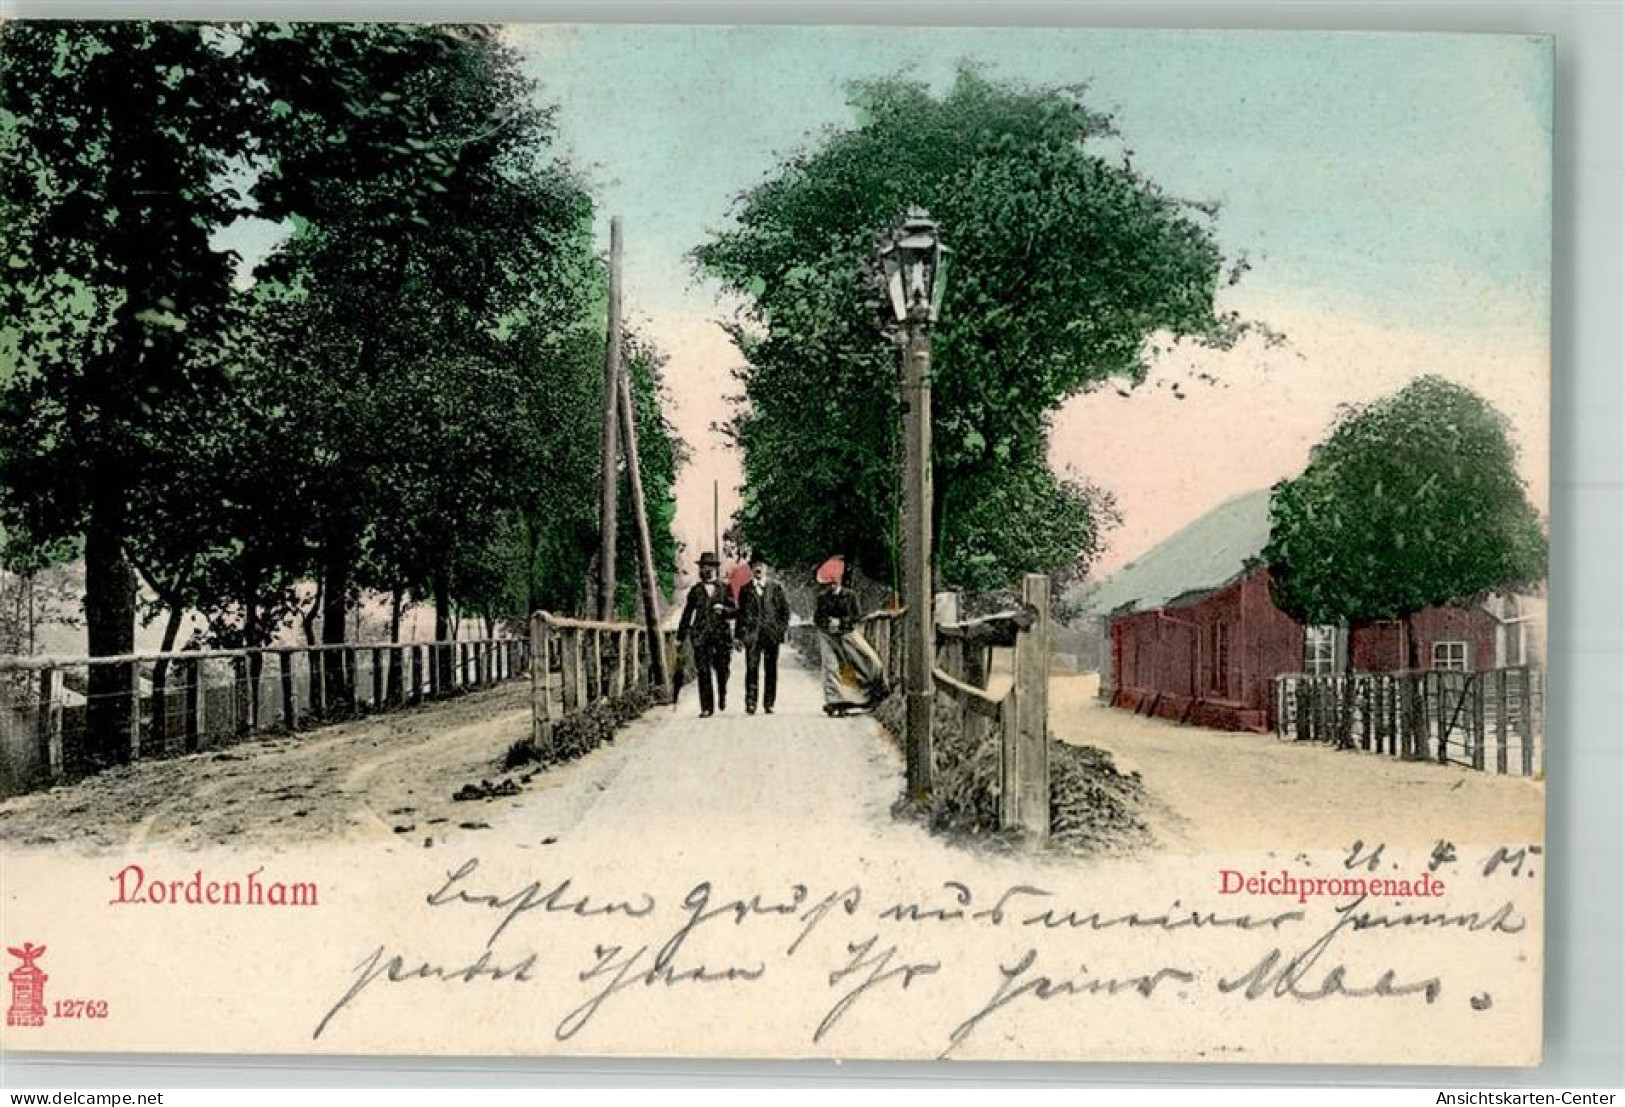 26. 4. 05.
Nordenham
Deichpromenade
Besten Gruß aus meiner Heimat
sendet Ihnen Ihr Heinr. Maas.
12762
delcampe.net
Ansichtskarten-Center